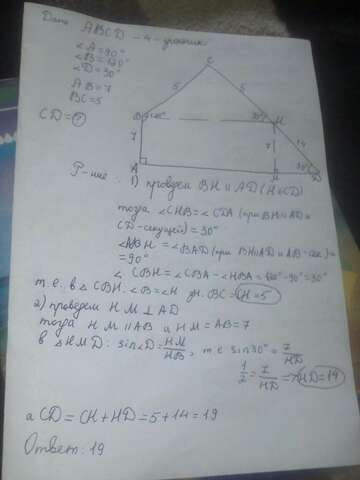 Дано ABCD – 4-угольник
∠A=90°
∠B=120°
∠D=30°
AB=7
BC=5
CD=?
C
5
5
B
H
30°
14
7
7
A
M
30°
D
Р-ние:
1) проведем BH || AD (H∈CD)
тогда ∠CHB=∠CDA (при BH||AD и
CD-секущей)=30°
∠ABH=∠BAD (при BH||AD и AB-сек.)=
=90°
∠CBH=∠CBA-∠HBA=120°-90°=30°
т.е. в ΔCBH: ∠B=∠H зн. BC=CH=5
2) проведем HM⊥AD
тогда HM||AB и HM=AB=7
в ΔHMD: sin∠D=HM/HD, т.е. sin30°=7/HD
1/2=7/HD=>HD=14
а CD=CH+HD=5+14=19
Ответ: 19